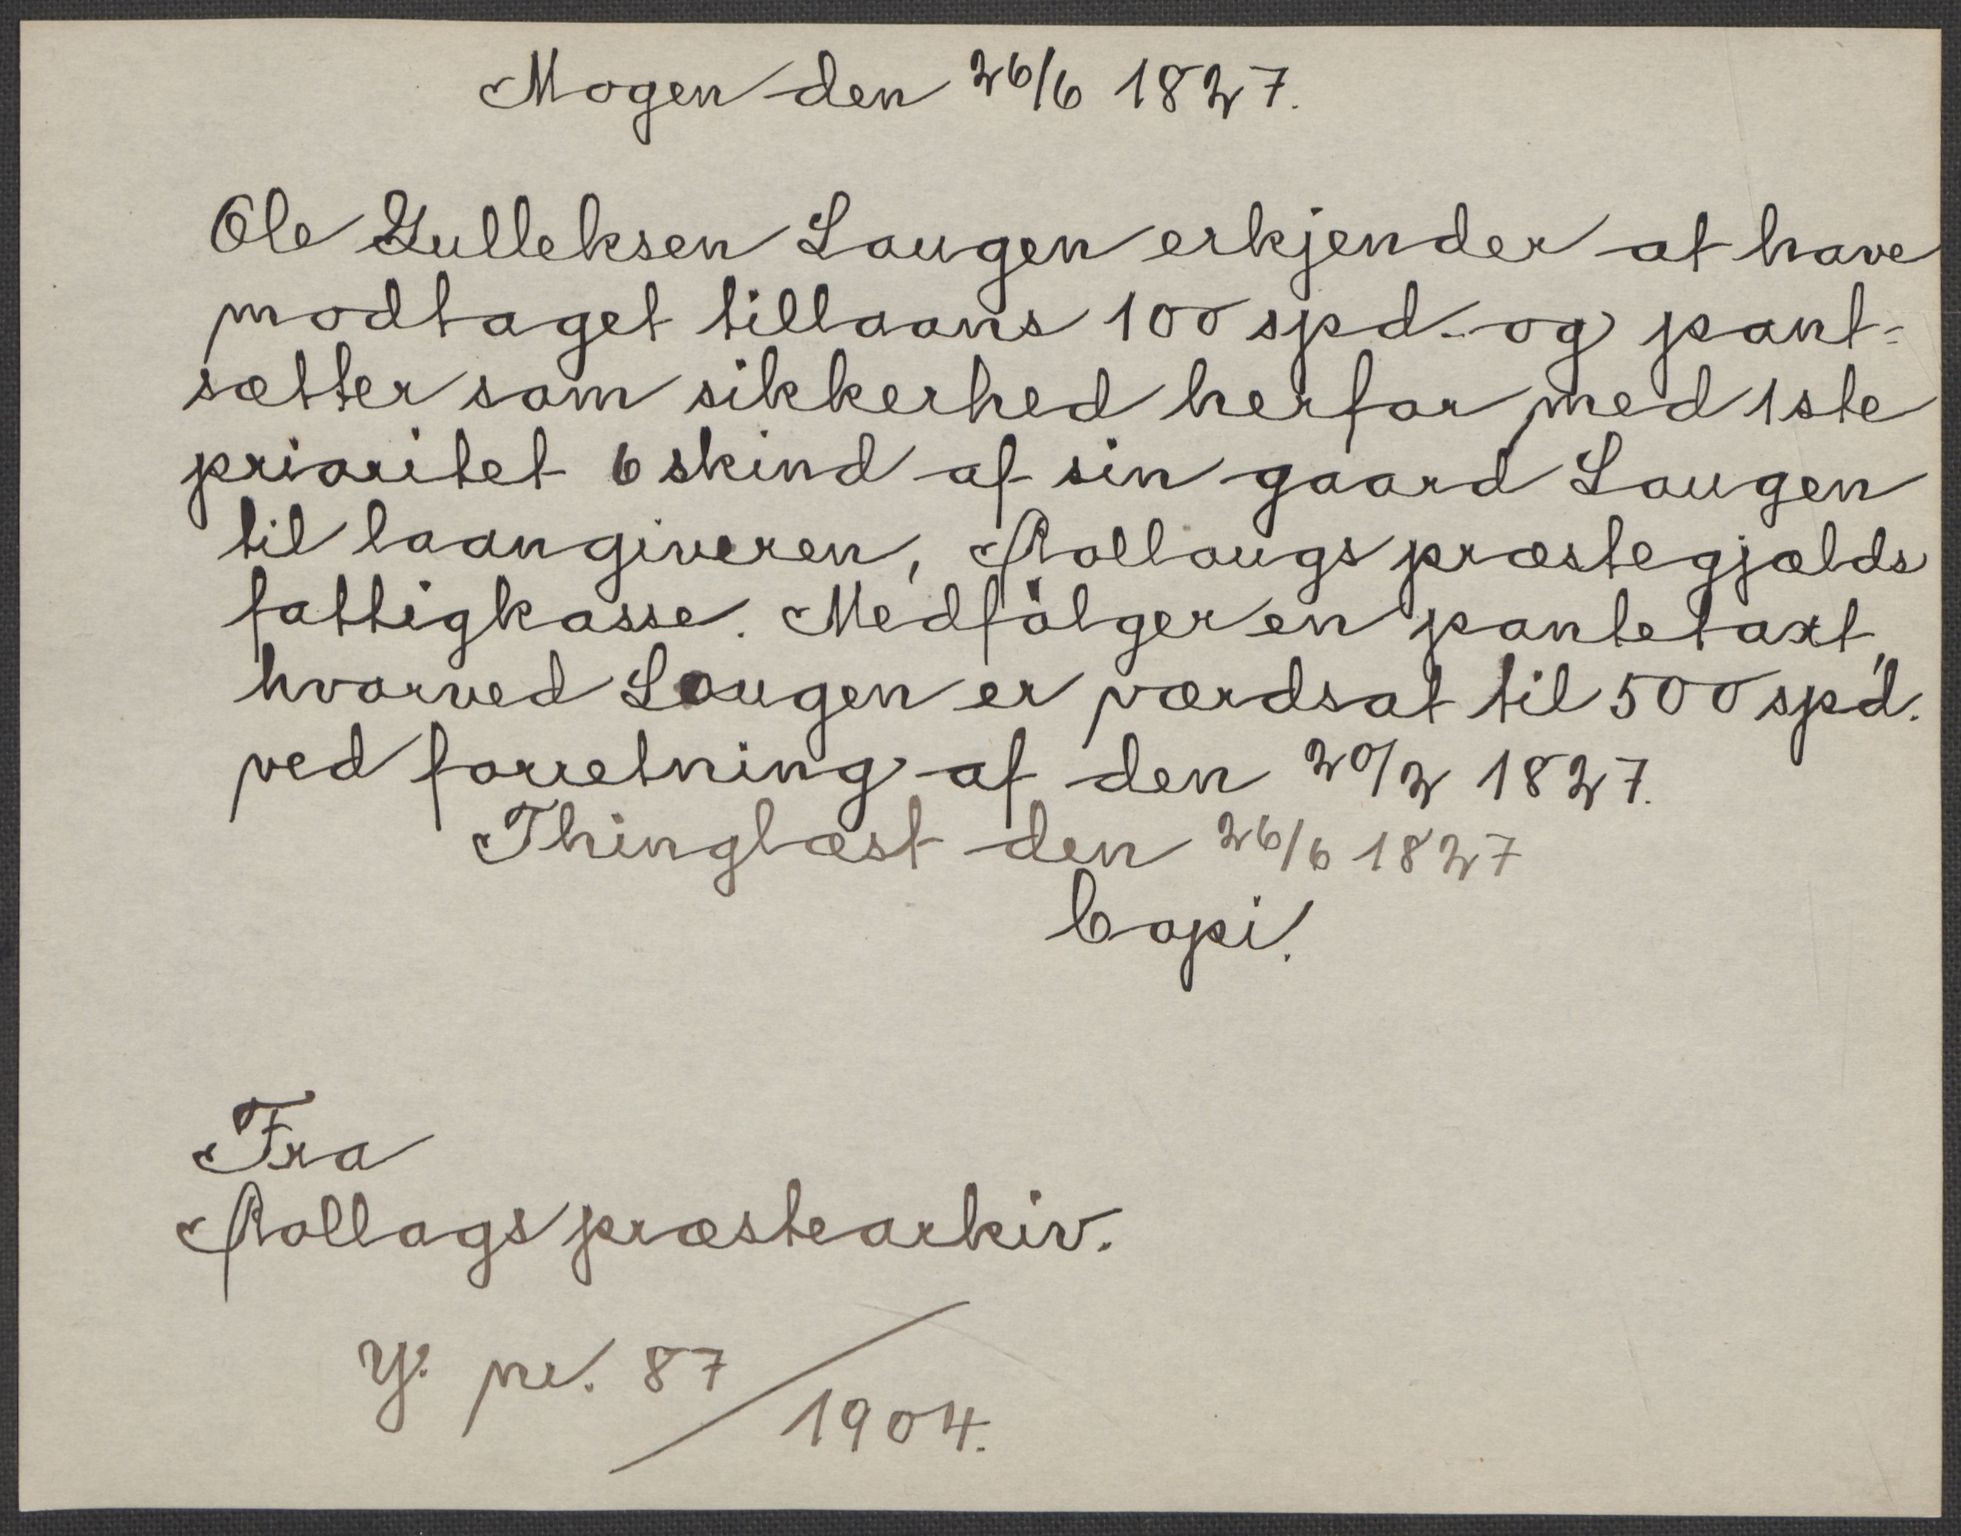 Mogen den 26/6 1827.
Ole Gulleksen Laugen erkjender at have
modtaget tillaans 100 spd. og pant-
sætter som sikkerhed herfor med 1ste
prioritet 6 skind af sin gaard Laugen
til laangiveren, Rollaugs præstegjælds
fattigkasse. Medfölger en pantetaxt,
hvorved Laugen er værdsat til 500 spd.
ved forretning af den 20/2 1827.
Thinglæst den 26/6 1827
Copi.
Fra
Rollags præstearkiv.
Y. nr. 87/1904.